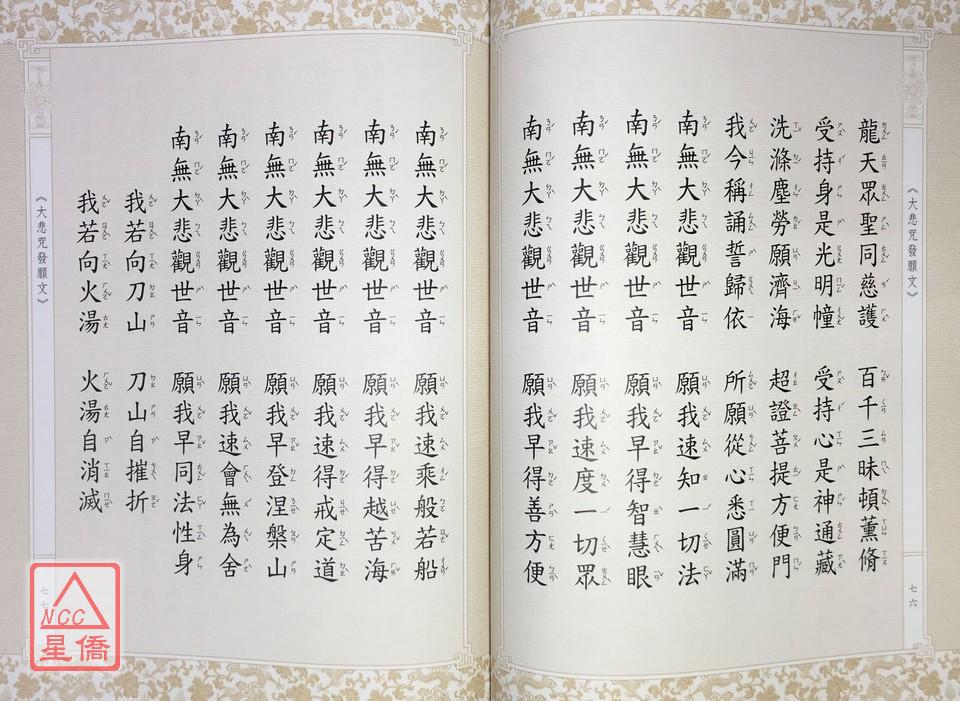 《大悲咒發願文》
龍天眾聖同慈護 百千三昧頓薰脩
受持身是光明幢 受持心是神通藏
洗滌塵勞願濟海 超證菩提方便門
我今稱誦誓歸依 所願從心悉圓滿
南無大悲觀世音 願我速知一切法
南無大悲觀世音 願我早得智慧眼
南無大悲觀世音 願我速度一切眾
南無大悲觀世音 願我早得善方便
七六
南無大悲觀世音 願我速乘般若船
南無大悲觀世音 願我早得越苦海
南無大悲觀世音 願我速得戒定道
南無大悲觀世音 願我早登涅槃山
南無大悲觀世音 願我速會無為舍
南無大悲觀世音 願我早同法性身
我若向刀山 刀山自摧折
我若向火湯 火湯自消滅
《大悲咒發願文》
七七
NCC
星僑